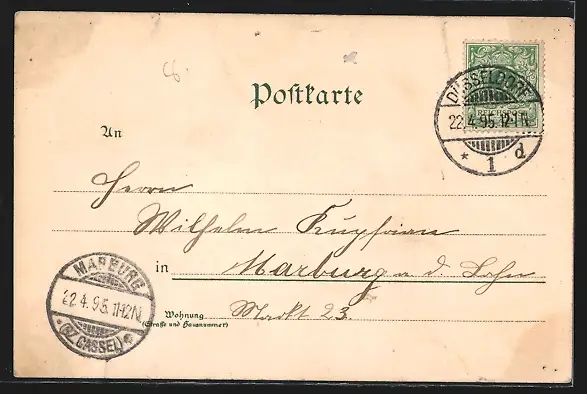 8
Postkarte
DÜSSELDORF
22.4.95.12-1N.
* 1 d
REICHSPOST
An
Herrn
Wilhelm
in Marburg a. d. Lahn
Wohnung Markt 23.
(Straße und Hausnummer)
MARBURG
22.4.95.11-12N.
*(BZ. CASSEL)*